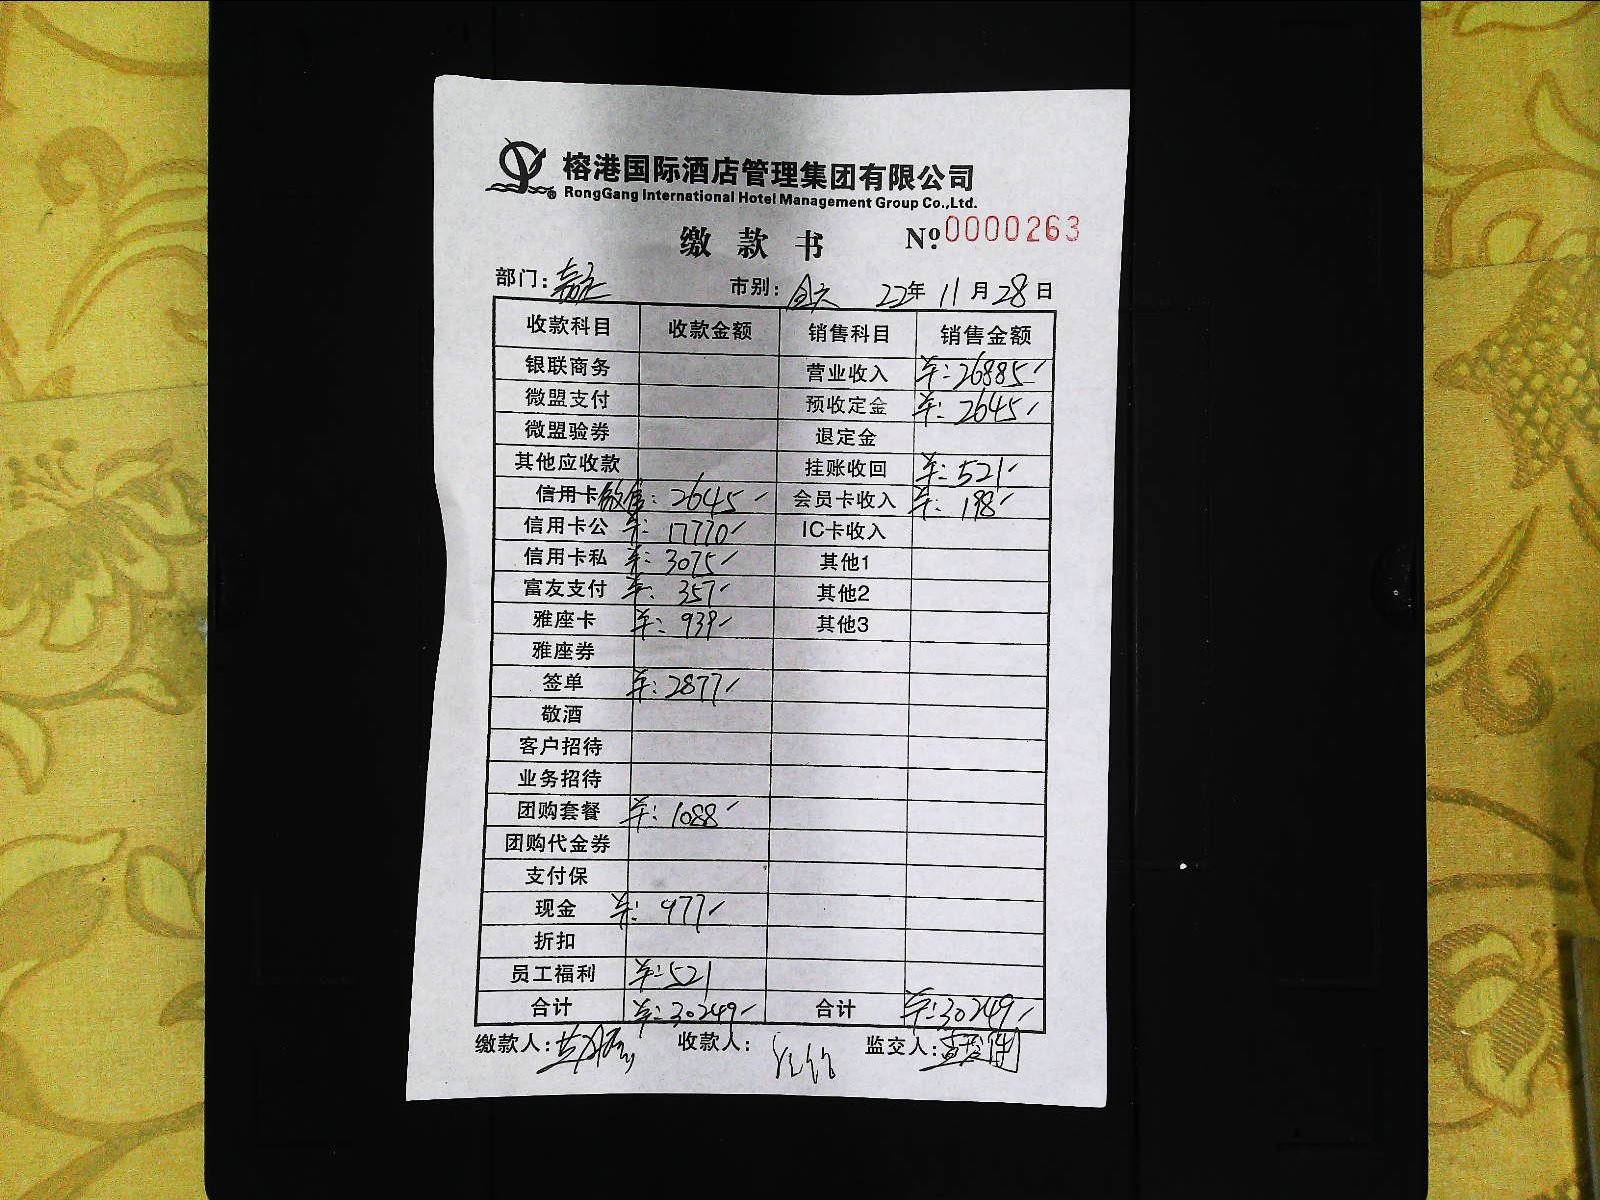 榕港国际酒店管理集团有限公司
RongGang International Hotel Management Group Co.,Ltd.
缴款书 Nº 0000263
部门: 市别: 全天 22年11月28日
收款科目 收款金额 销售科目 销售金额
银联商务 营业收入 羊:26885
微盟支付 预收定金 羊:2645
微盟验券 退定金
其他应收款 挂账收回 羊:521
信用卡 微信:2645 会员卡收入 羊:198
信用卡公 羊:17770 IC卡收入
信用卡私 羊:3075 其他1
富友支付 羊:357 其他2
雅座卡 羊:939 其他3
雅座券
签单 羊:2877
敬酒
客户招待
业务招待
团购套餐 羊:1088
团购代金券
支付保
现金 羊:977
折扣
员工福利 羊:521
合计 羊:30249 合计 羊:30249
缴款人: 收款人: 监交人: